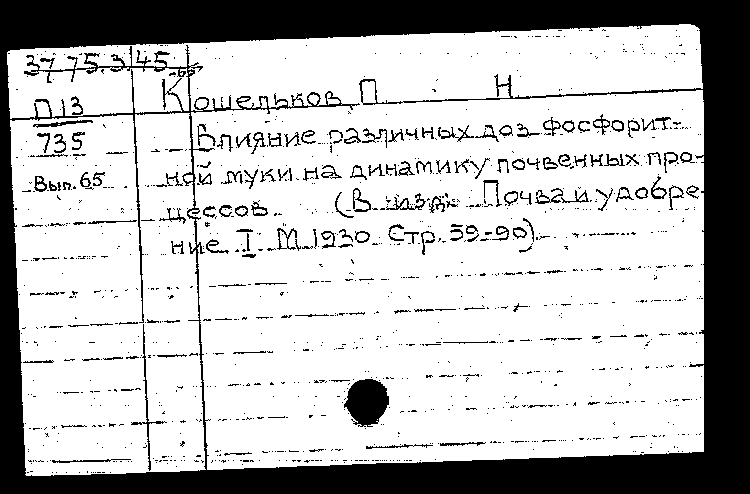 37 75.3.45
П 13
735
Вып. 65
Кошельков П Н
Влияние различных доз фосфорит-
ной муки на динамику почвенных про-
цессов. (В изд: Почва и удобре-
ние I М 1930 Стр. 59-90)